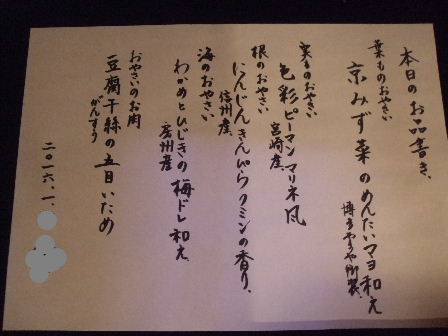 本日のお品書き
葉ものおやさい
京みず菜のめんたいマヨ和え
実ものおやさい
色彩ピーマンマリネ風
宮崎産
根のおやさい
にんじんきんぴらクミンの香り
信州産
海のおやさい
わかめとひじきの梅ドレ和え
房州産
おやさいのお肉
豆腐干絲の五目いため
がんすう
二〇一六、一、